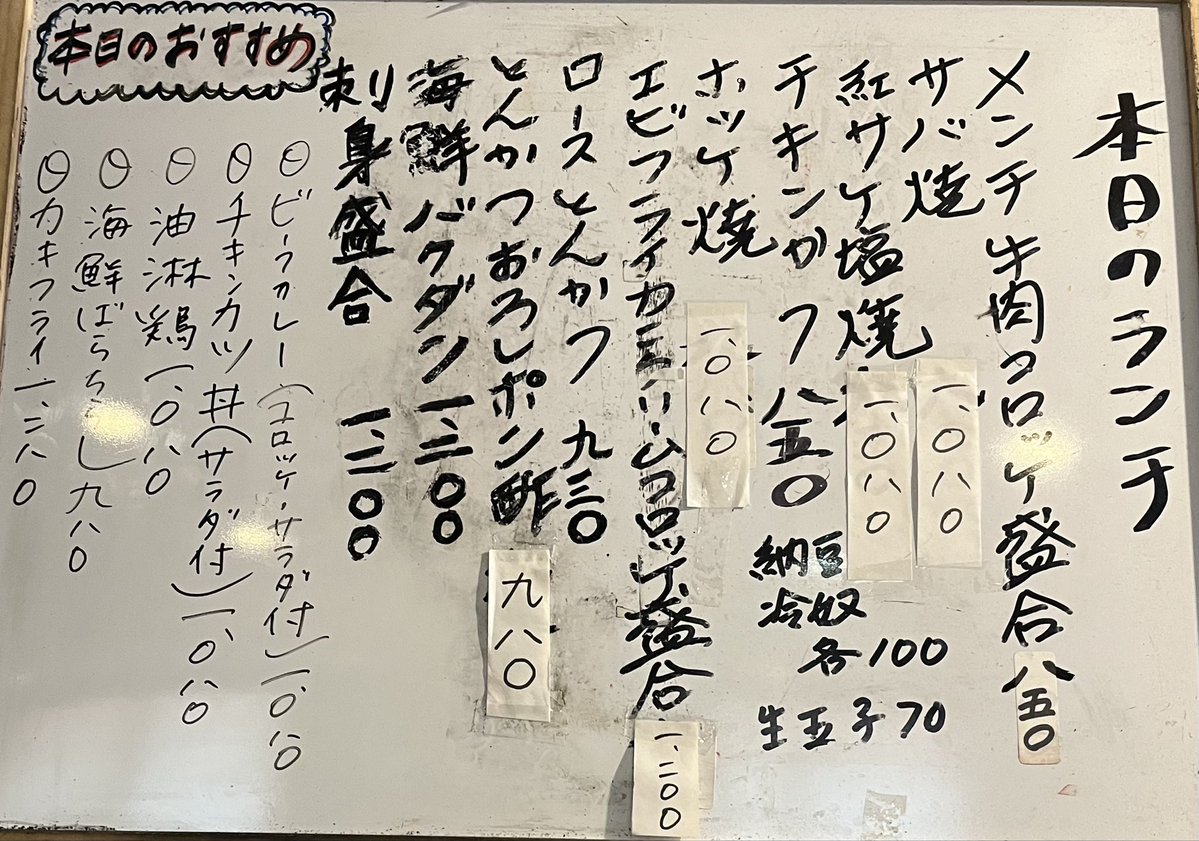 本日のランチ
メンチ 牛肉コロッケ盛合 八五〇
サバ焼 一、〇八〇
紅サケ塩焼 一、〇八〇
チキンかつ 八五〇
納豆
冷奴
各100
生玉子70
ホッケ焼 一、〇八〇
エビフライカニクリームコロッケ盛合 一、二〇〇
ロースとんかつ 九三〇
とんかつおろしポン酢 九八〇
海鮮バクダン 一、三〇〇
刺身盛合 一、三〇〇
本日のおすすめ
〇ビーフカレー(コロッケ・サラダ付)一、〇八〇
〇チキンカツ丼(サラダ付)一、〇八〇
〇油淋鶏 一、〇八〇
〇海鮮ばらちらし 九八〇
〇カキフライ 一、二八〇